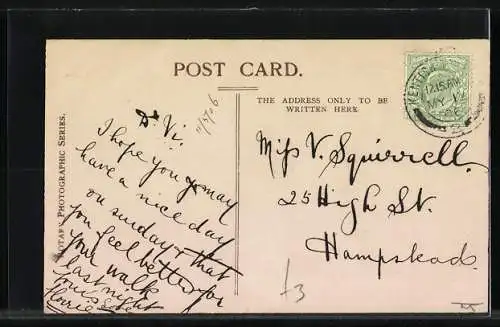 POST CARD.
THE ADDRESS ONLY TO BE
WRITTEN HERE.
ROTARY PHOTOGRAPHIC SERIES.
KENTISH
12.15 PM
MY 12
Dr Vi.
I hope you may
have a nice day
on sunday & that
you feel better for
your walk
last night
Florrie
Miss V. Squirrell.
25 High St.
Hampstead.
£3